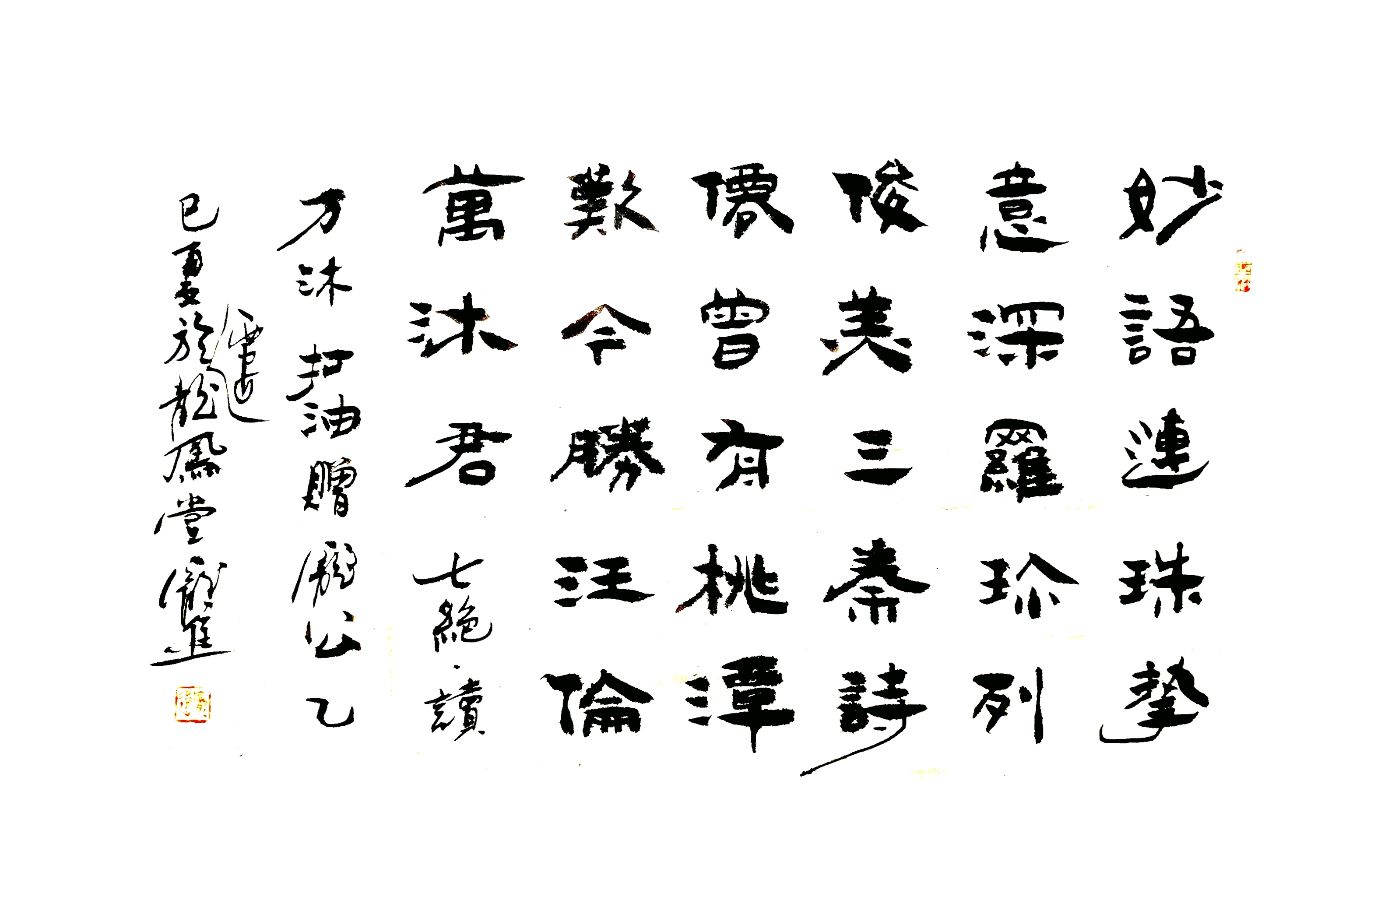 妙語連珠摯
意深羅珍列
俊美三秦詩
僊曾有桃潭
歎今勝汪倫
萬沐君 七絕·讀
万沐打油贈龐公乙
巳夏於龍鳳堂龐進